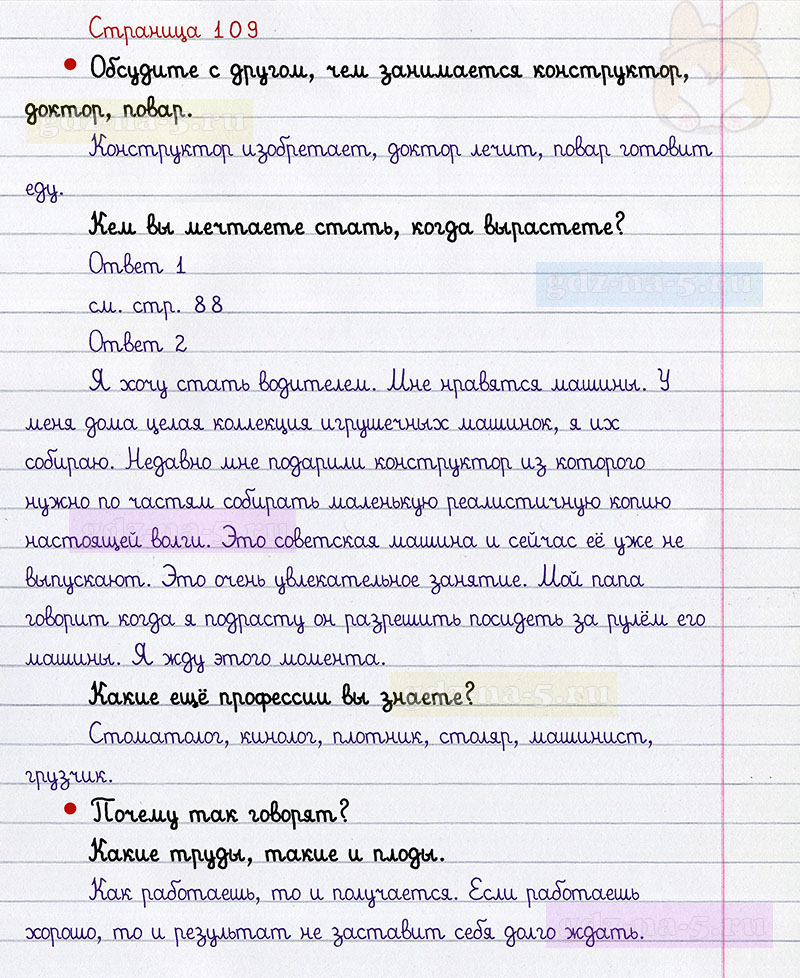 Страница 109
• Обсудите с другом, чем занимается конструктор,
доктор, повар.
gdz-na-5.ru
Конструктор изобретает, доктор лечит, повар готовит
еду.
Кем вы мечтаете стать, когда вырастете?
Ответ 1
gdz-na-5.ru
см. стр. 88
Ответ 2
Я хочу стать водителем. Мне нравятся машины. У
меня дома целая коллекция игрушечных машинок, я их
собираю. Недавно мне подарили конструктор из которого
нужно по частям собирать маленькую реалистичную копию
gdz-na-5.ru
настоящей волги. Это советская машина и сейчас её уже не
выпускают. Это очень увлекательное занятие. Мой папа
говорит когда я подрасту он разрешить посидеть за рулём его
машины. Я жду этого момента.
Какие ещё профессии вы знаете?
gdz-na-5.ru
Стоматолог, кинолог, плотник, столяр, машинист,
грузчик.
• Почему так говорят?
Какие труды, такие и плоды.
Как работаешь, то и получается. Если работаешь
хорошо, то и результат не заставит себя долго ждать.
gdz-na-5.ru